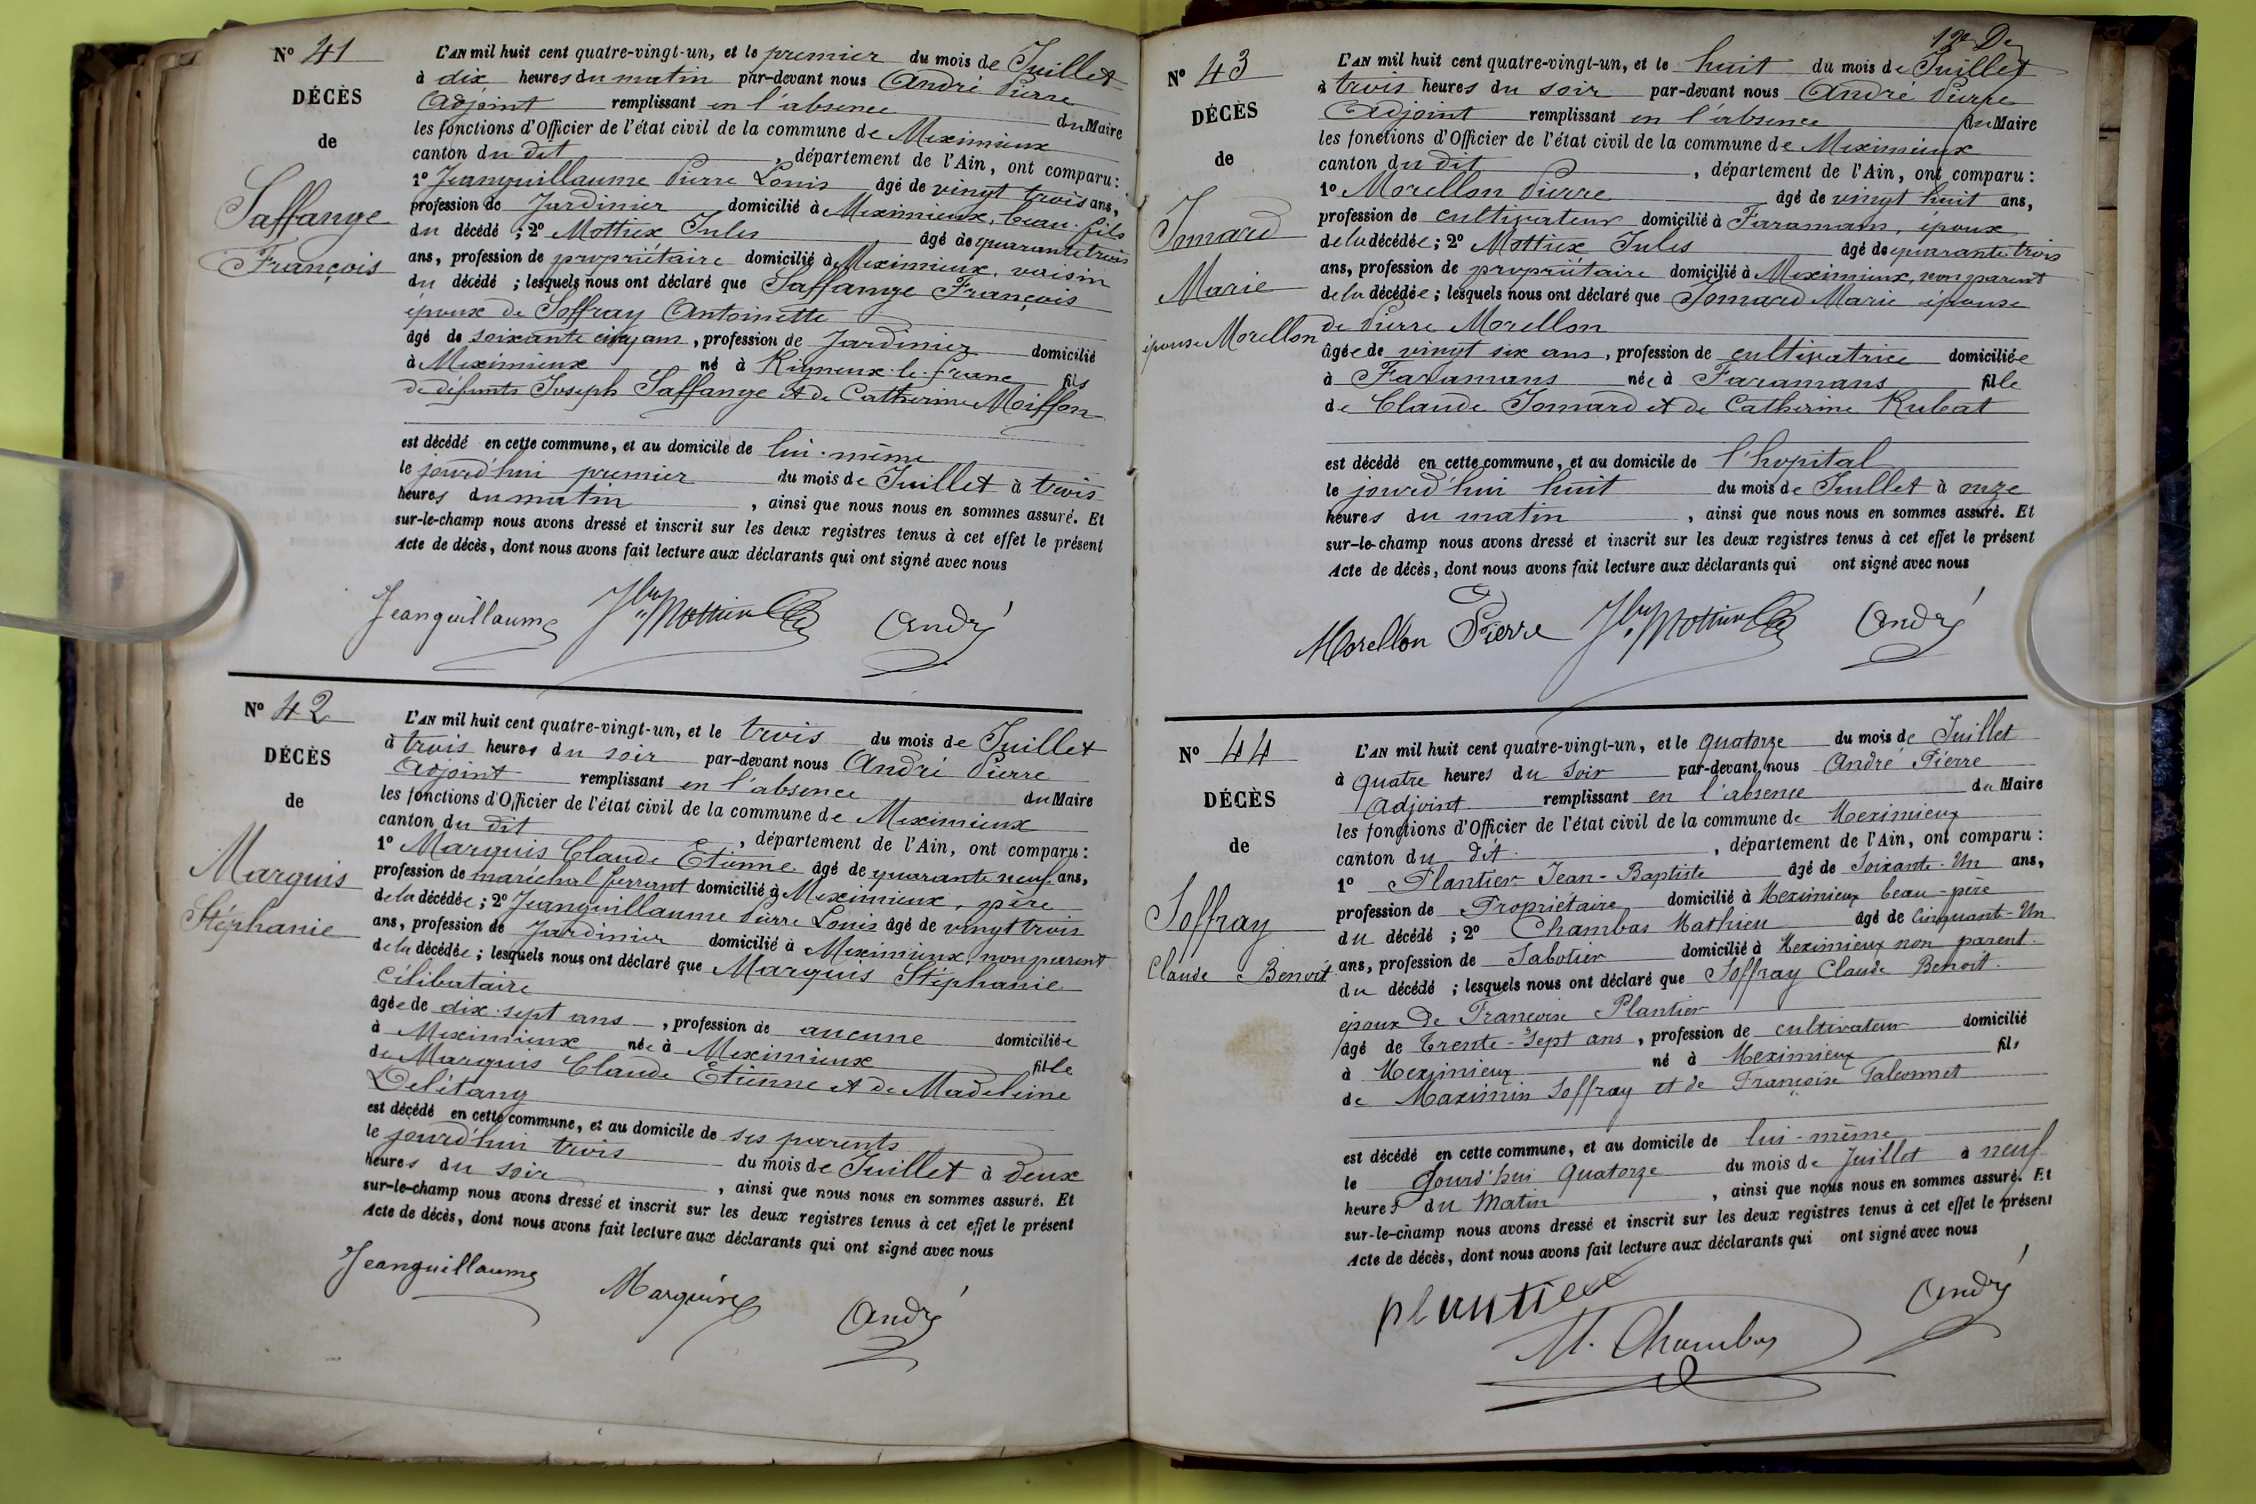 Nº 41
DÉCÈS
de
Saffange
François
L'AN mil huit cent quatre-vingt-un, et le premier du mois de Juillet
à dix heures du matin par-devant nous André Pierre
Adjoint remplissant en l'absence du Maire
les fonctions d'Officier de l'état civil de la commune de Meximieux
canton du dit , département de l'Ain, ont comparu :
1º Jeanguillaume Pierre Louis âgé de vingt trois ans,
profession de Jardinier domicilié à Meximieux, beau-fils
du décédé ; 2º Mottiex Jules âgé de quarante trois
ans, profession de propriétaire domicilié à Meximieux, voisin
du décédé ; lesquels nous ont déclaré que Saffange François
époux de Soffray Antoinette
âgé de soixante cinq ans, profession de Jardinier domicilié
à Meximieux né à Rigneux-le-franc fils
de défunts Joseph Saffange et de Catherine Moiffon
est décédé en cette commune, et au domicile de lui-même
le jourd'hui premier du mois de Juillet à trois
heures du matin , ainsi que nous nous en sommes assuré. Et
sur-le-champ nous avons dressé et inscrit sur les deux registres tenus à cet effet le présent
Acte de décès, dont nous avons fait lecture aux déclarants qui ont signé avec nous
Jeanguillaume André
Nº 42
DÉCÈS
de
Marquis
Stéphanie
L'AN mil huit cent quatre-vingt-un, et le trois du mois de Juillet
à trois heures du soir par-devant nous André Pierre
Adjoint remplissant en l'absence du Maire
les fonctions d'Officier de l'état civil de la commune de Meximieux
canton du dit , département de l'Ain, ont comparu :
1º Marquis Claude Etienne âgé de quarante neuf ans,
profession de maréchal ferrant domicilié à Meximieux, père
de la décédée ; 2º Jeanguillaume Pierre Louis âgé de vingt trois
ans, profession de Jardinier domicilié à Meximieux, non parent
de la décédée ; lesquels nous ont déclaré que Marquis Stéphanie
célibataire
âgée de dix-sept ans , profession de aucune domiciliée
à Meximieux née à Meximieux fille
de Marquis Claude Etienne et de Madeleine
Delétang
est décédé en cette commune, et au domicile de ses parents
le jourd'hui trois du mois de Juillet à deux
heures du soir , ainsi que nous nous en sommes assuré. Et
sur-le-champ nous avons dressé et inscrit sur les deux registres tenus à cet effet le présent
Acte de décès, dont nous avons fait lecture aux déclarants qui ont signé avec nous
Jeanguillaume Marquis André
Nº 43
DÉCÈS
de
Jomard
Marie
épouse Morellon
L'AN mil huit cent quatre-vingt-un, et le huit du mois de Juillet
à trois heures du soir par-devant nous André Pierre
Adjoint remplissant en l'absence du Maire
les fonctions d'Officier de l'état civil de la commune de Meximieux
canton du dit , département de l'Ain, ont comparu :
1º Morellon Pierre âgé de vingt huit ans,
profession de cultivateur domicilié à Faramans, époux
de la décédée ; 2º Mottiex Jules âgé de quarante trois
ans, profession de propriétaire domicilié à Meximieux, non parent
de la décédée ; lesquels nous ont déclaré que Jomard Marie épouse
de Pierre Morellon
âgée de vingt six ans, profession de cultivatrice domiciliée
à Faramans née à Faramans fille
de Claude Jomard et de Catherine Rubat
est décédé en cette commune, et au domicile de l'hopital
le jourd'hui huit du mois de Juillet à onze
heures du matin , ainsi que nous nous en sommes assuré. Et
sur-le-champ nous avons dressé et inscrit sur les deux registres tenus à cet effet le présent
Acte de décès, dont nous avons fait lecture aux déclarants qui ont signé avec nous
Morellon Pierre André
Nº 44
DÉCÈS
de
Soffray
Claude Benoit
L'AN mil huit cent quatre-vingt-un, et le quatorze du mois de Juillet
à quatre heures du Soir par-devant nous André Pierre
Adjoint remplissant en l'absence du Maire
les fonctions d'Officier de l'état civil de la commune de Meximieux
canton du dit , département de l'Ain, ont comparu :
1º Plantier Jean-Baptiste âgé de Soixante-Un ans,
profession de Propriétaire domicilié à Meximieux beau-père
du décédé ; 2º Chambas Mathieu âgé de Cinquante-Un
ans, profession de Sabotier domicilié à Meximieux non parent
du décédé ; lesquels nous ont déclaré que Soffray Claude Benoit
époux De Françoise Plantier
âgé de Trente-Sept ans, profession de cultivateur domicilié
à Meximieux né à Meximieux fils
de Maximin Soffray et de Françoise Falconnet
est décédé en cette commune, et au domicile de lui-même
le Jourd'hui Quatorze du mois de Juillet à neuf
heures du Matin , ainsi que nous nous en sommes assuré. Et
sur-le-champ nous avons dressé et inscrit sur les deux registres tenus à cet effet le présent
Acte de décès, dont nous avons fait lecture aux déclarants qui ont signé avec nous
plantier André
M. Chambas